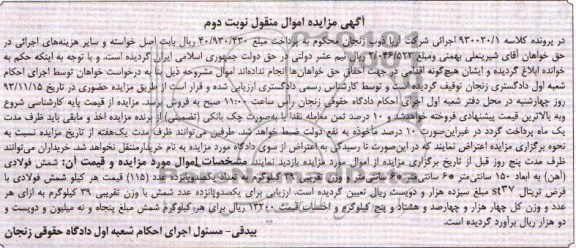 آگهی مزایده اموال منقول نوبت دوم
در پرونده کلاسه ۹۳۰۰۲۰/۱ اجرائی شرکت آریا ذوب زنجان محکوم به پرداخت مبلغ ۴۰/۹۳۰/۴۳۰ ریال بابت اصل خواسته و سایر هزینه‌های اجرائی در
حق خواهان آقای شیرینعلی بهمنی ومبلغ ۲/۰۴۶/۵۲۲ ریال نیم عشر دولتی در حق دولت جمهوری اسلامی ایران گردیده است. و با توجه به اینکه حکم به
خوانده ابلاغ گردیده و ایشان هیچ‌گونه اقدامی در جهت احقاق حق خواهان‌ها انجام نداده‌اند اموال مشروحه ذیل بنا به درخواست خواهان توسط اجرای احکام
شعبه اول دادگستری زنجان توقیف گردیده است و توسط کارشناس رسمی دادگستری ارزیابی شده و قرار است از طریق مزایده حضوری در تاریخ ۹۳/۱۱/۱۵
روز چهارشنبه در محل دفتر شعبه اول اجرای احکام دادگاه حقوقی زنجان راس ساعت ۱۱:۰۰ صبح به فروش برسد. مزایده از قیمت پایه کارشناسی شروع
وبه بالاترین قیمت پیشنهادی فروخته خواهدشد و ۱۰ درصد ثمن معامله نقداً یا به‌صورت چک بانکی (تضمینی) از برنده مزایده اخذ و مابقی باید ظرف مدت
یک ماه پرداخت گردد در غیراین‌صورت ۱۰ درصد ماخوذه به نفع دولت ضبط خواهد شد. طرفین می‌توانند ظرف مدت یک‌هفته از تاریخ مزایده نسبت به
نحوه برگزاری مزایده اعتراض نمایند که در این‌صورت تا رسیدگی به اعتراض از سوی دادگاه مورد مزایده به نام خریدارمنتقل نخواهد شد. خریداران می‌توانند
ظرف مدت پنج روز قبل از تاریخ برگزاری مزایده از اموال مورد مزایده بازدید نمایند. مشخصات اموال مورد مزایده و قیمت آن: شمش فولادی
(آهن) به ابعاد ۱۵۰ سانتی‌متر *۶ سانتی‌متر به وزن تقریبی ۳۹ کیلوگرم به تعداد یکصدوپانزده عدد (۱۱۵) قیمت هر کیلو شمش فولادی با
فرض تریتال st۳۷ مبلغ سیزده هزار و دویست ریال تعیین گردیده است. ارزیابی برای یکصدوپانزده عدد شمش با وزن تقریبی ۳۹ کیلوگرم به ازای هر
عدد و وزن کل چهار هزار و چهارصد و هشتاد و پنج کیلوگرم و احتساب قیمت ۱۳۲۰۰ ریال برای هر کیلوگرم شمش مبلغ پنجاه و نه میلیون و دویست و
دو هزار ریال برآورد گردیده است.
بیدقی- مسئول اجرای احکام شعبه اول دادگاه حقوقی زنجان